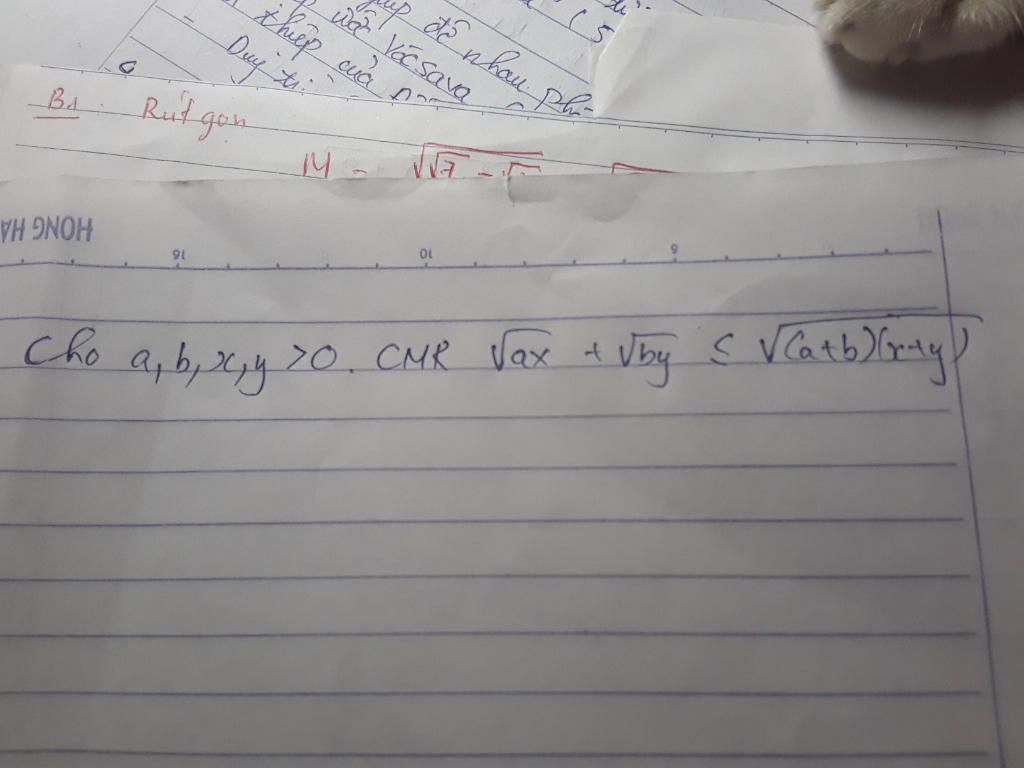 giúp đỡ nhau
thiệp vào Vácsava
của
Duy trì
B1. Rút gọn
M = √√7 -
HONG HA
15 10 5
Cho a, b, x, y > 0. CMR √ax + √by ≤ √(a+b)(x+y)